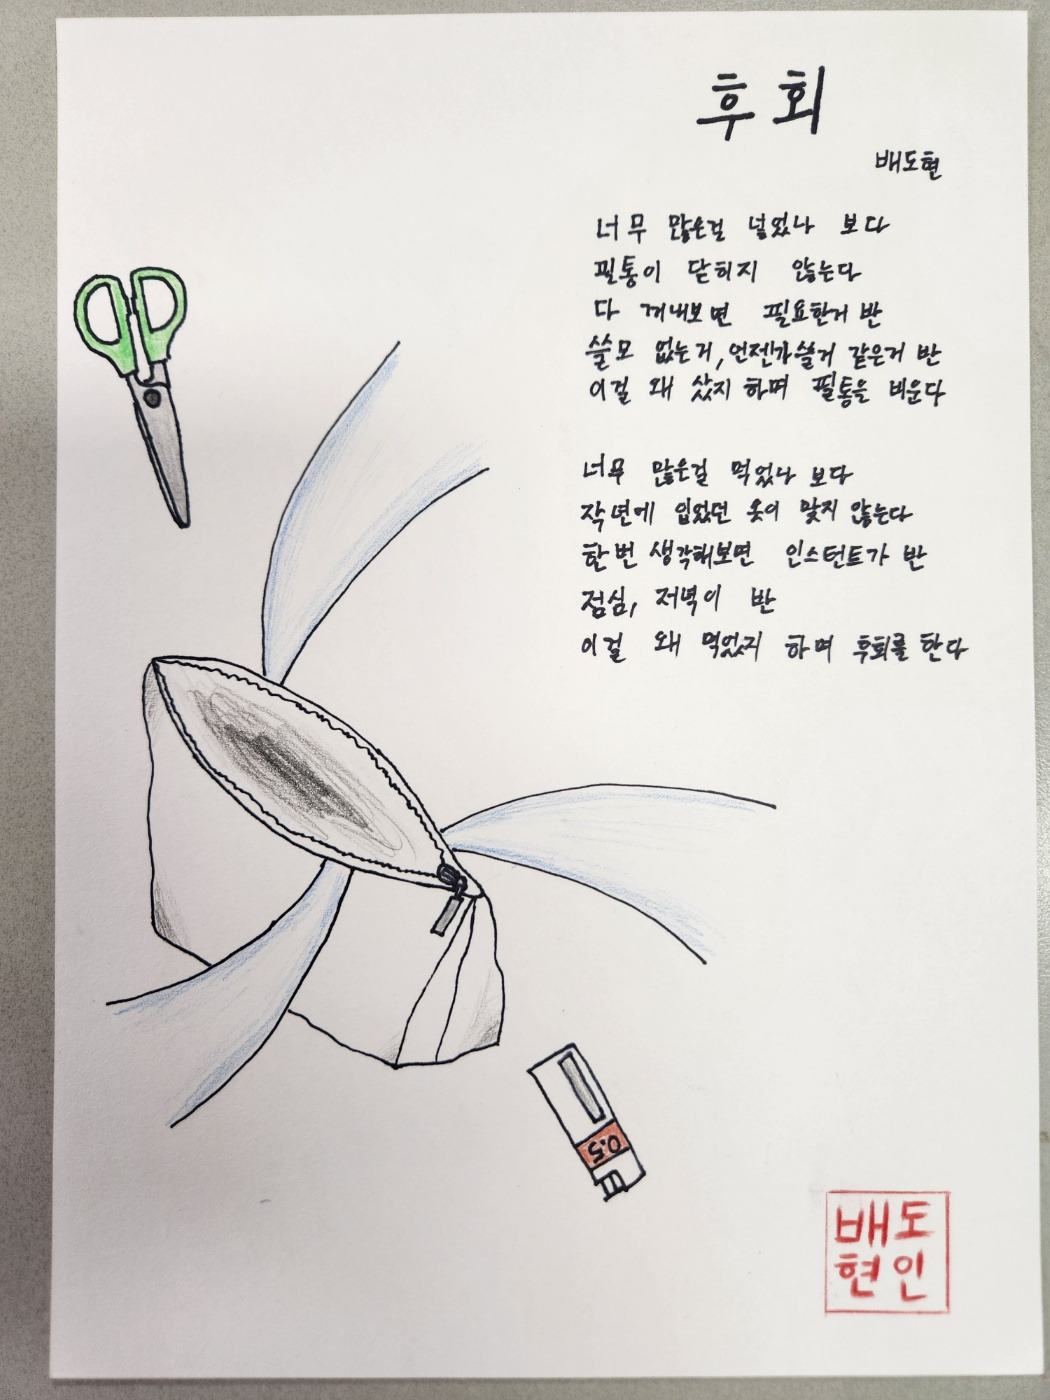 후회
배도현
너무 많은걸 넣었나 보다
필통이 닫히지 않는다
다 꺼내보면 필요한거 반
쓸모 없는거, 언젠가쓸거 같은거 반
이걸 왜 샀지 하며 필통을 비운다
너무 많은걸 먹었나 보다
작년에 입었던 옷이 맞지 않는다
한번 생각해보면 인스턴트가 반
점심, 저녁이 반
이걸 왜 먹었지 하며 후회를 한다
0.5
배도
현인